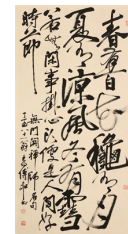 春有百花龝有月
夏有涼風冬有雪
若無閒事掛心頭便是人間好
時節
無門開禪師